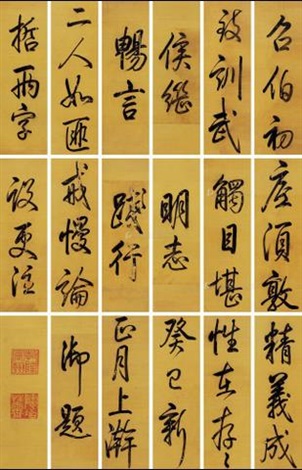 召伯初
致訓武
侯繼
暢言
二人如匪
哲兩字
應須敦
觸目堪
明志
踐行
戒慢論
設更注
精義成
性在存〻
癸巳新
正月上澣
御題